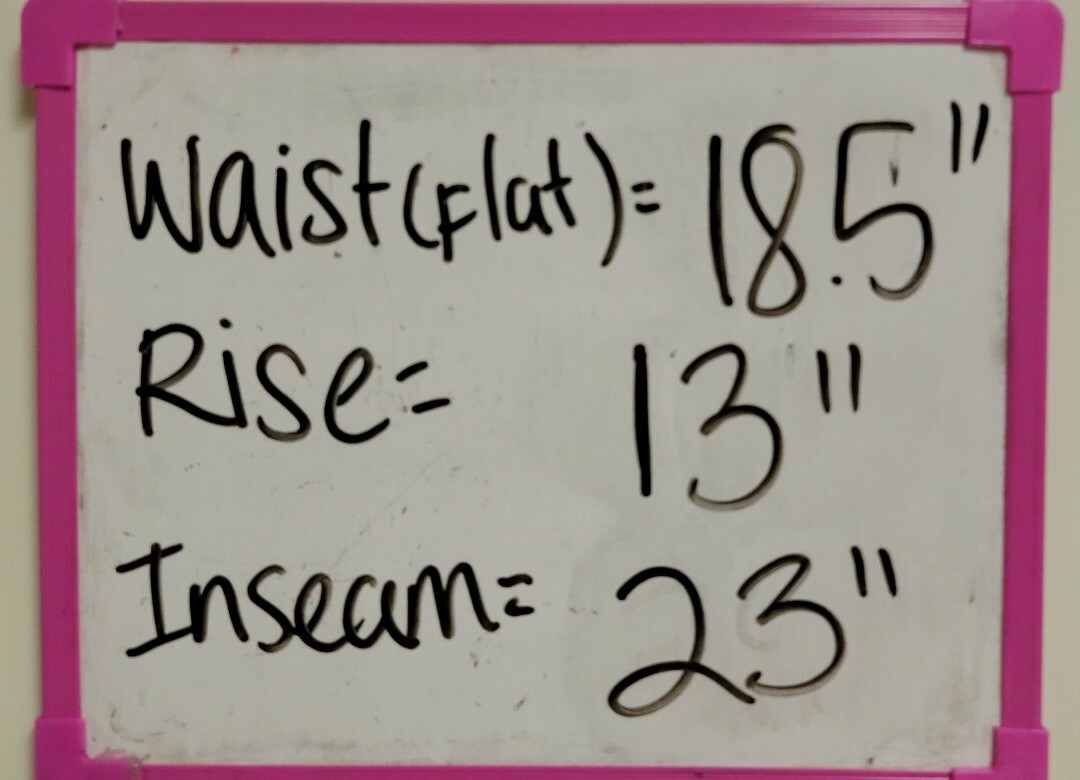 Waist(Flat)= 18.5"
Rise= 13"
Inseam= 23"